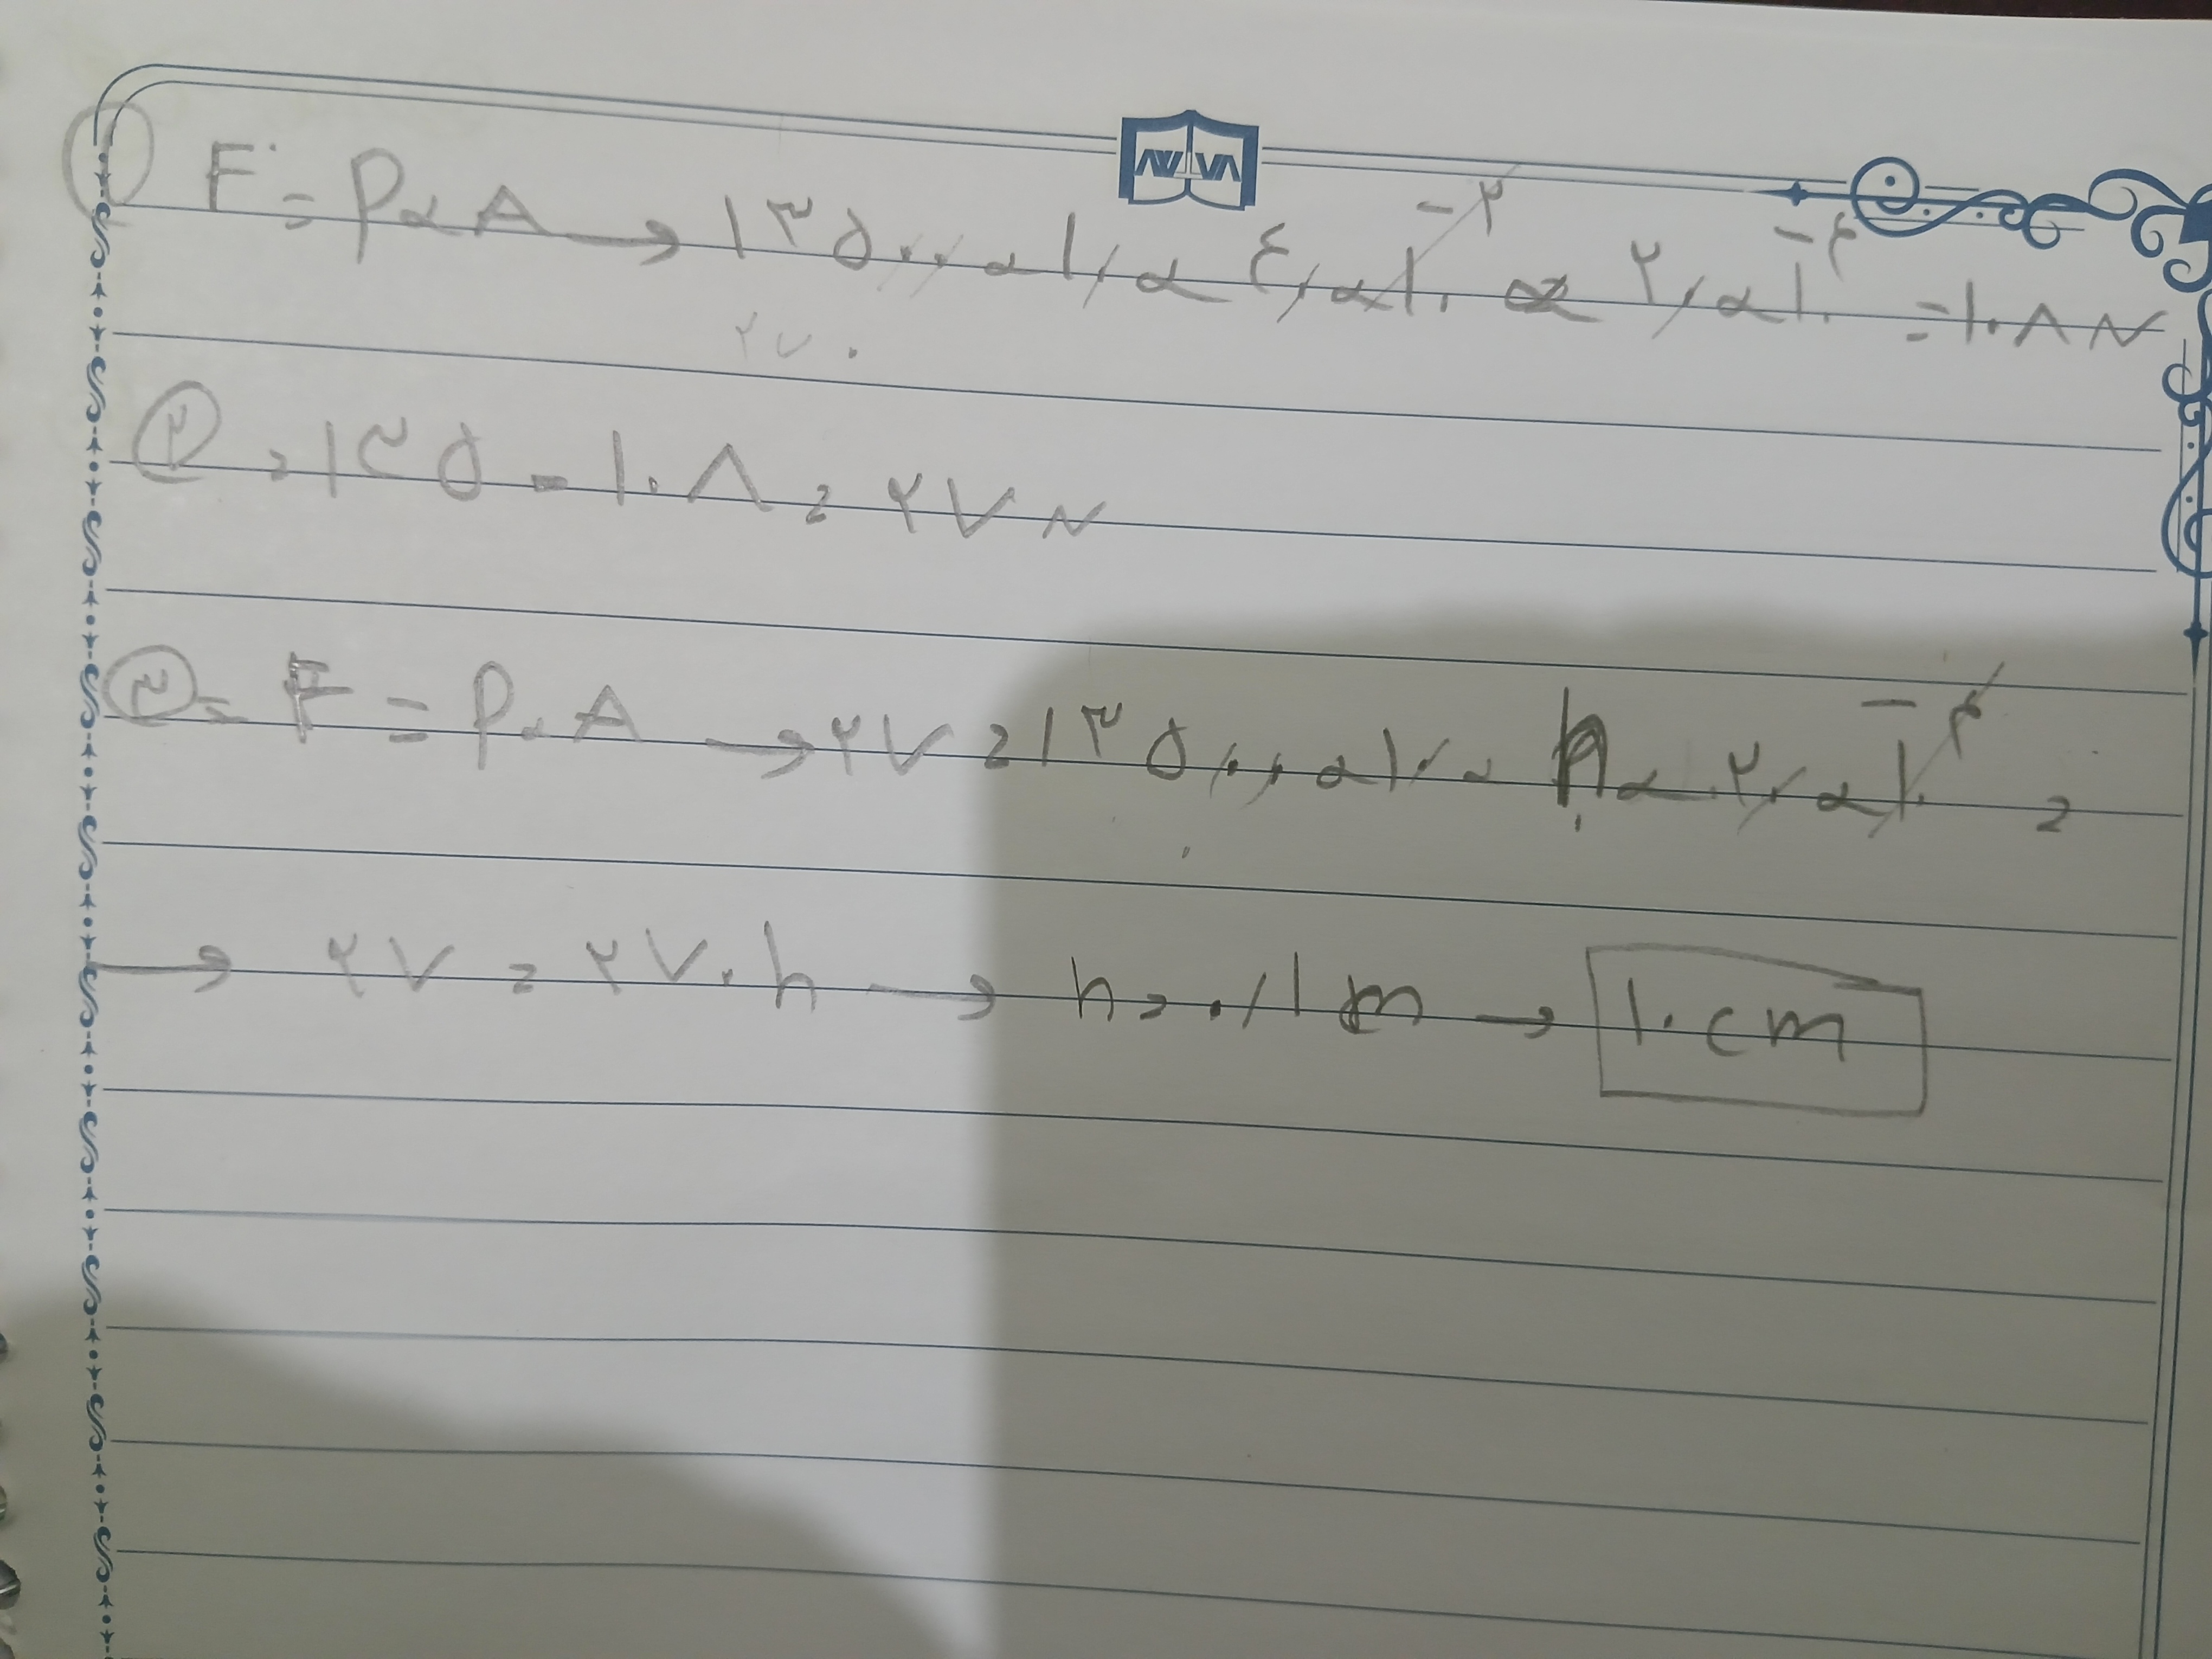 ① F = P × A → ۱۳۵۰۰ × ۱۰ × ٤۰ × ۱۰^-۲ × ۲۰ × ۱۰^-۴ = ۱۰۸ N
۲۷۰
② = ۱۳۵ - ۱۰۸ = ۲۷ N
③ = F = P × A → ۲۷ = ۱۳۵۰۰ × ۱۰ × h × ۲۰ × ۱۰^-۴ =
→ ۲۷ = ۲۷۰h → h = ۰/۱ m → ۱۰ cm